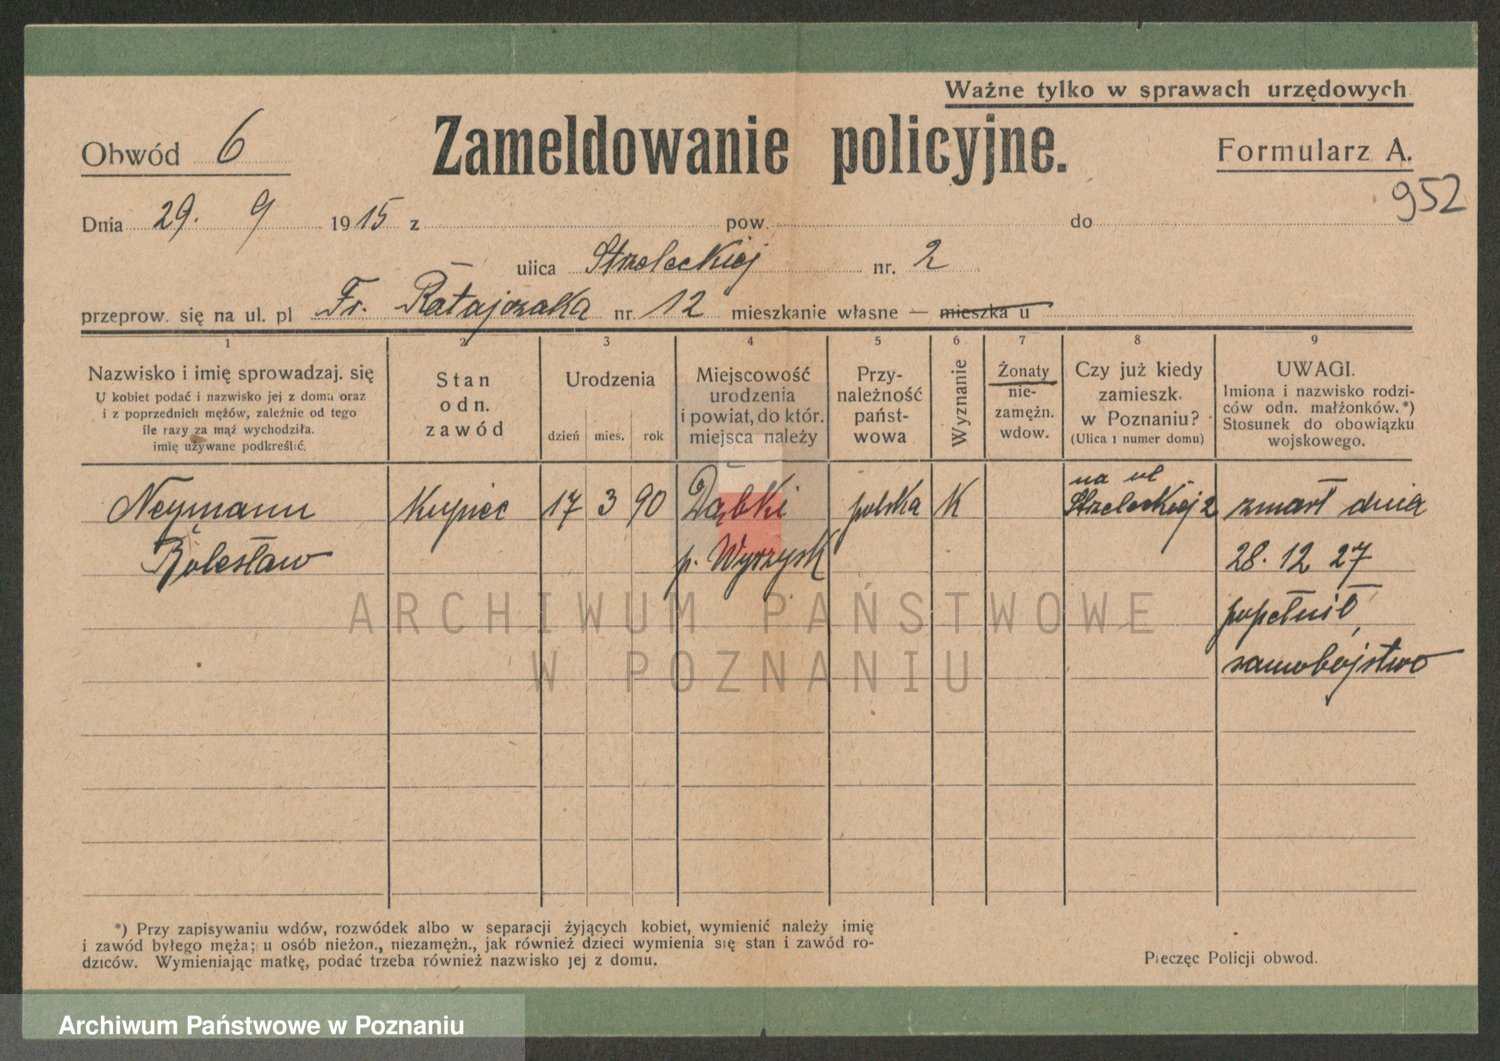 Ważne tylko w sprawach urzędowych
Obwód 6
Zameldowanie policyjne.
Formularz A.
952
Dnia 29. 9 1915 z pow. do
ulica Strzeleckiej nr. 2
przeprow. się na ul. pl Fr. Ratajczaka nr. 12 mieszkanie własne — mieszka u
1 2 3 4 5 6 7 8 9
Nazwisko i imię sprowadzaj. się
U kobiet podać i nazwisko jej z domu oraz
i z poprzednich mężów, zależnie od tego
ile razy za mąż wychodziła.
imię używane podkreślić.
Stan
odn.
zawód
Urodzenia
dzień mies. rok
Miejscowość
urodzenia
i powiat, do któr.
miejsca należy
Przy-
należność
państ-
wowa
Wyznanie
Żonaty
nie-
zamężn.
wdow.
Czy już kiedy
zamieszk.
w Poznaniu?
(Ulica i numer domu)
UWAGI.
Imiona i nazwisko rodzi-
ców odn. małżonków.*)
Stosunek do obowiązku
wojskowego.
Neymann
Bolesław
Kupiec
17 3 90
Dąbki
p. Wyrzysk
polska
K
na ul
Strzeleckiej 2
zmarł dnia
28. 12 27
popełnił
samobójstwo
ARCHIWUM PAŃSTWOWE
W POZNANIU
*) Przy zapisywaniu wdów, rozwódek albo w separacji żyjących kobiet, wymienić należy imię
i zawód byłego męża; u osób nieżon., niezamężn., jak również dzieci wymienia się stan i zawód ro-
dziców. Wymieniając matkę, podać trzeba również nazwisko jej z domu.
Pieczęc Policji obwod.
Archiwum Państwowe w Poznaniu